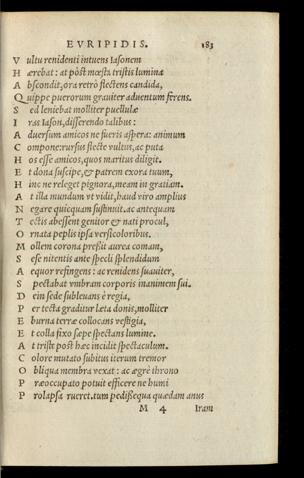 EVRIPIDIS. 183
V ultu renidenti intuens Iasonem
H ærebat: at pòst mœsta tristis lumina
A bscondit, ora retrò flectens candida,
Q uippe puerorum grauiter aduentum ferens.
S ed leniebat molliter puellulæ
I ras Iason, disserendo talibus:
A duersum amicos ne fueris aspera: animum
C ompone: rursus flecte vultus, ac puta
H os esse amicos, quos maritus diligit.
E t dona suscipe, & patrem exora tuum,
H inc ne releget pignora, meam in gratiam.
A t illa mundum vt vidit, haud viro amplius
N egare quicquam sustinuit. ac antequam
T ectis abessent genitor & nati procul,
O rnata peplis ipsa versicoloribus.
M ollem corona pressit aurea comam,
S ese nitentis ante speculi splendidum
A equor refingens: ac renidens suauiter,
S pectabat vmbram corporis imaninem sui.
D ein sede subleuans è regia,
P er tecta graditur læta donis, molliter
E burna terræ collocans vestigia,
E t colla fixo sæpe spectans lumine.
A t triste post hæc incidit spectaculum.
C olore mutato subitus iterum tremor
O bliqua membra vexat: ac ægrè throno
P ræoccupato potuit efficere ne humi
P rolapsa rueret. tum pedissequa quædam anus
M 4 Iram